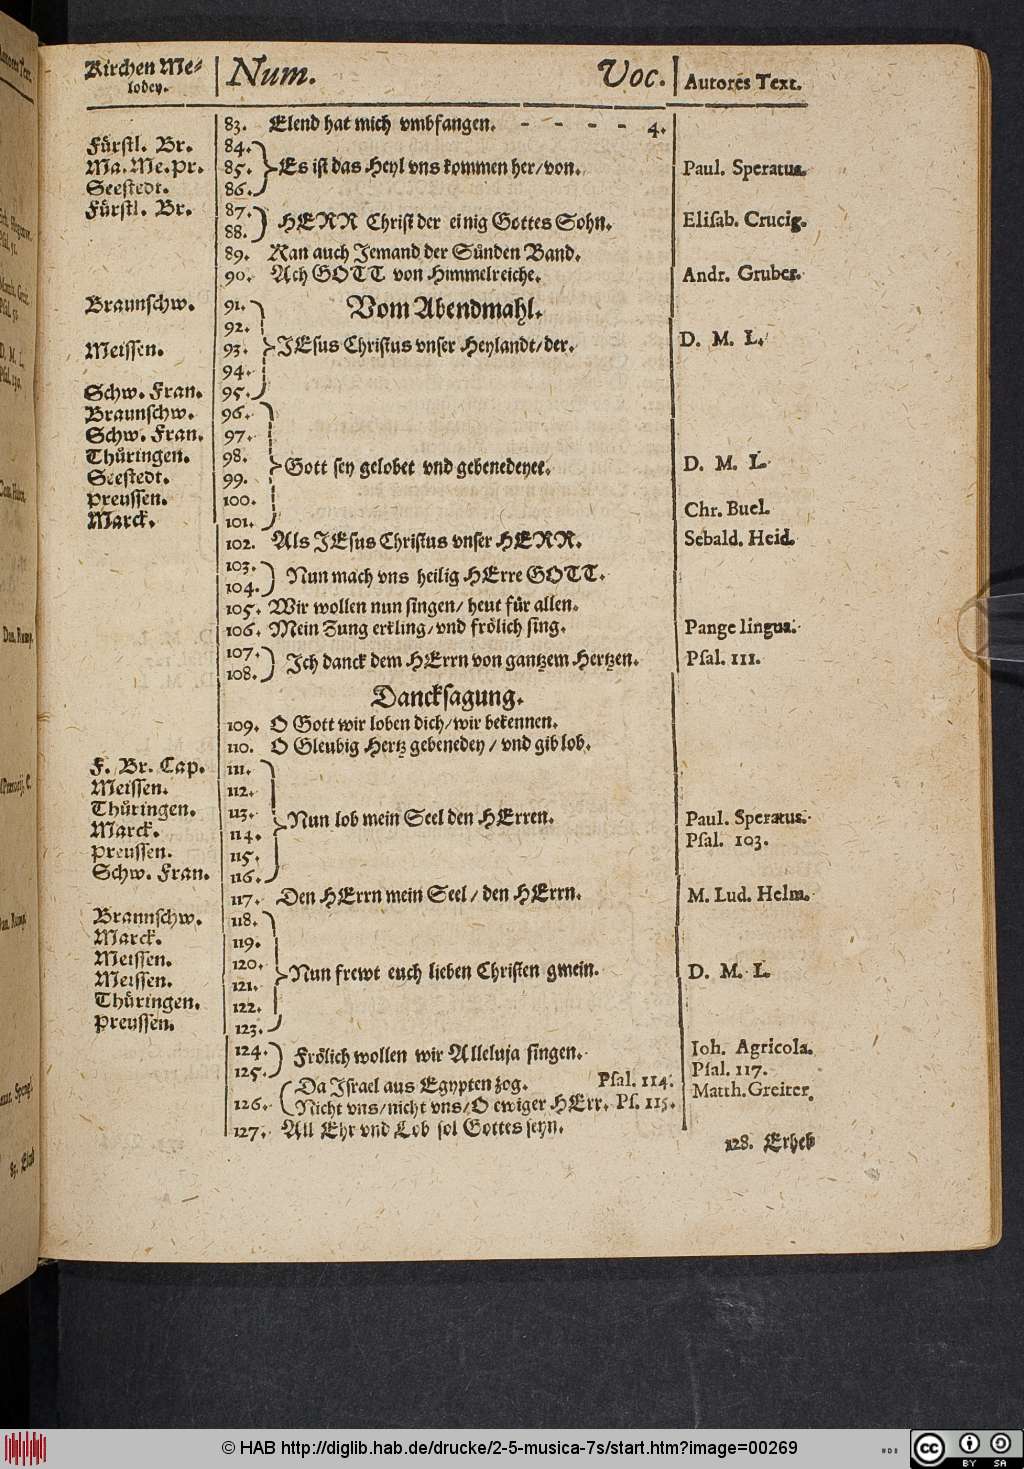 Kirchen Me⸗ Num. Voc. Autores Text.
lodey.
83. Elend hat mich vmbfangen. - - - - 4.
Fürstl. Br. 84.
Ma. Me. Pr. 85. Es ist das Heyl vns kommen her/von. Paul. Speratus.
Seestedt. 86.
Fürstl. Br. 87.
88. HERR Christ der einig Gottes Sohn. Elisab. Crucig.
89. Kan auch Jemand der Sünden Band.
90. Ach GOTT von Himmelreiche. Andr. Gruber.
Vom Abendmahl.
Braunschw. 91.
92.
Meissen. 93. JEsus Christus vnser Heylandt/der. D. M. L.
94.
Schw. Fran. 95.
Braunschw. 96.
Schw. Fran. 97.
Thüringen. 98. Gott sey gelobet vnd gebenedeyet. D. M. L.
Seestedt. 99.
Preussen. 100. Chr. Buel.
Marck. 101.
102. Als JEsus Christus vnser HERR. Sebald. Heid.
103.
104. Nun mach vns heilig HErre GOTT.
105. Wir wollen nun singen/ heut für allen.
106. Mein Zung erkling/vnd frölich sing. Pange lingua.
107.
108. Ich danck dem HErrn von gantzem Hertzen. Psal. 111.
Dancksagung.
109. O Gott wir loben dich/wir bekennen.
110. O Gleubig Hertz gebenedey / vnd gib lob.
F. Br. Cap. 111.
Meissen. 112.
Thüringen. 113. Nun lob mein Seel den HErren. Paul. Speratus.
Marck. 114. Psal. 103.
Preussen. 115.
Schw. Fran. 116.
117. Den HErrn mein Seel / den HErrn. M. Lud. Helm.
Braunschw. 118.
Marck. 119.
Meissen. 120. Nun frewt euch lieben Christen gmein. D. M. L.
Meissen. 121.
Thüringen. 122.
Preussen. 123.
124. Frölich wollen wir Alleluja singen. Ioh. Agricola.
125. Psal. 117.
Da Israel aus Egypten zog. Psal. 114. Matth. Greiter.
126. Nicht vns/nicht vns/O ewiger HErr. Ps. 115.
127. All Ehr vnd Lob sol Gottes seyn.
128. Erheb
© HAB http://diglib.hab.de/drucke/2-5-musica-7s/start.htm?image=00269
cc BY SA